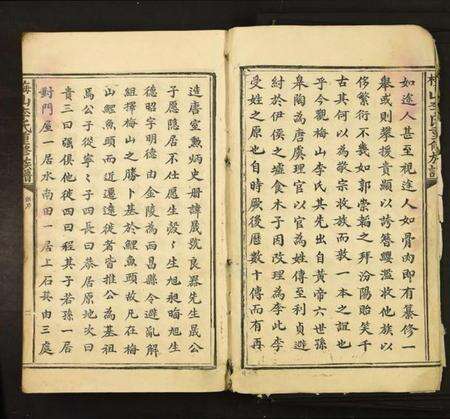 如途人甚至視途人如骨肉即有纂修一
舉或則攀援貴顯以誇簪纓濫收他族以
侈繁衍不幾如郭崇韜之拜汾陽貽笑千
古其何以為敬宗收族而敦一本之誼也
乎今觀梅山李氏其先出自黃帝六世孫
皋陶為唐虞理官以官為姓傳至利貞避
紂於伊侯之墟食木子因改理為李此李
受姓之原也自時厥後歷數十傳而有再
造唐室勳炳史冊諱晟號良器先生晟公
子愿隱居不仕愿生殻々生旭昶晦旭生
德昭字明德由金陵為西昌縣令避亂解
組擇梅山之勝卜基於鯉魚頭故凡在梅
山鯉魚頭而近遷遠徙者皆推公為基祖
焉公子從寧々子四長曰恭居原地次曰
貴三曰礪俱他徙四曰程其子若孫一居
對門屋一居水南田一居上石其由三處